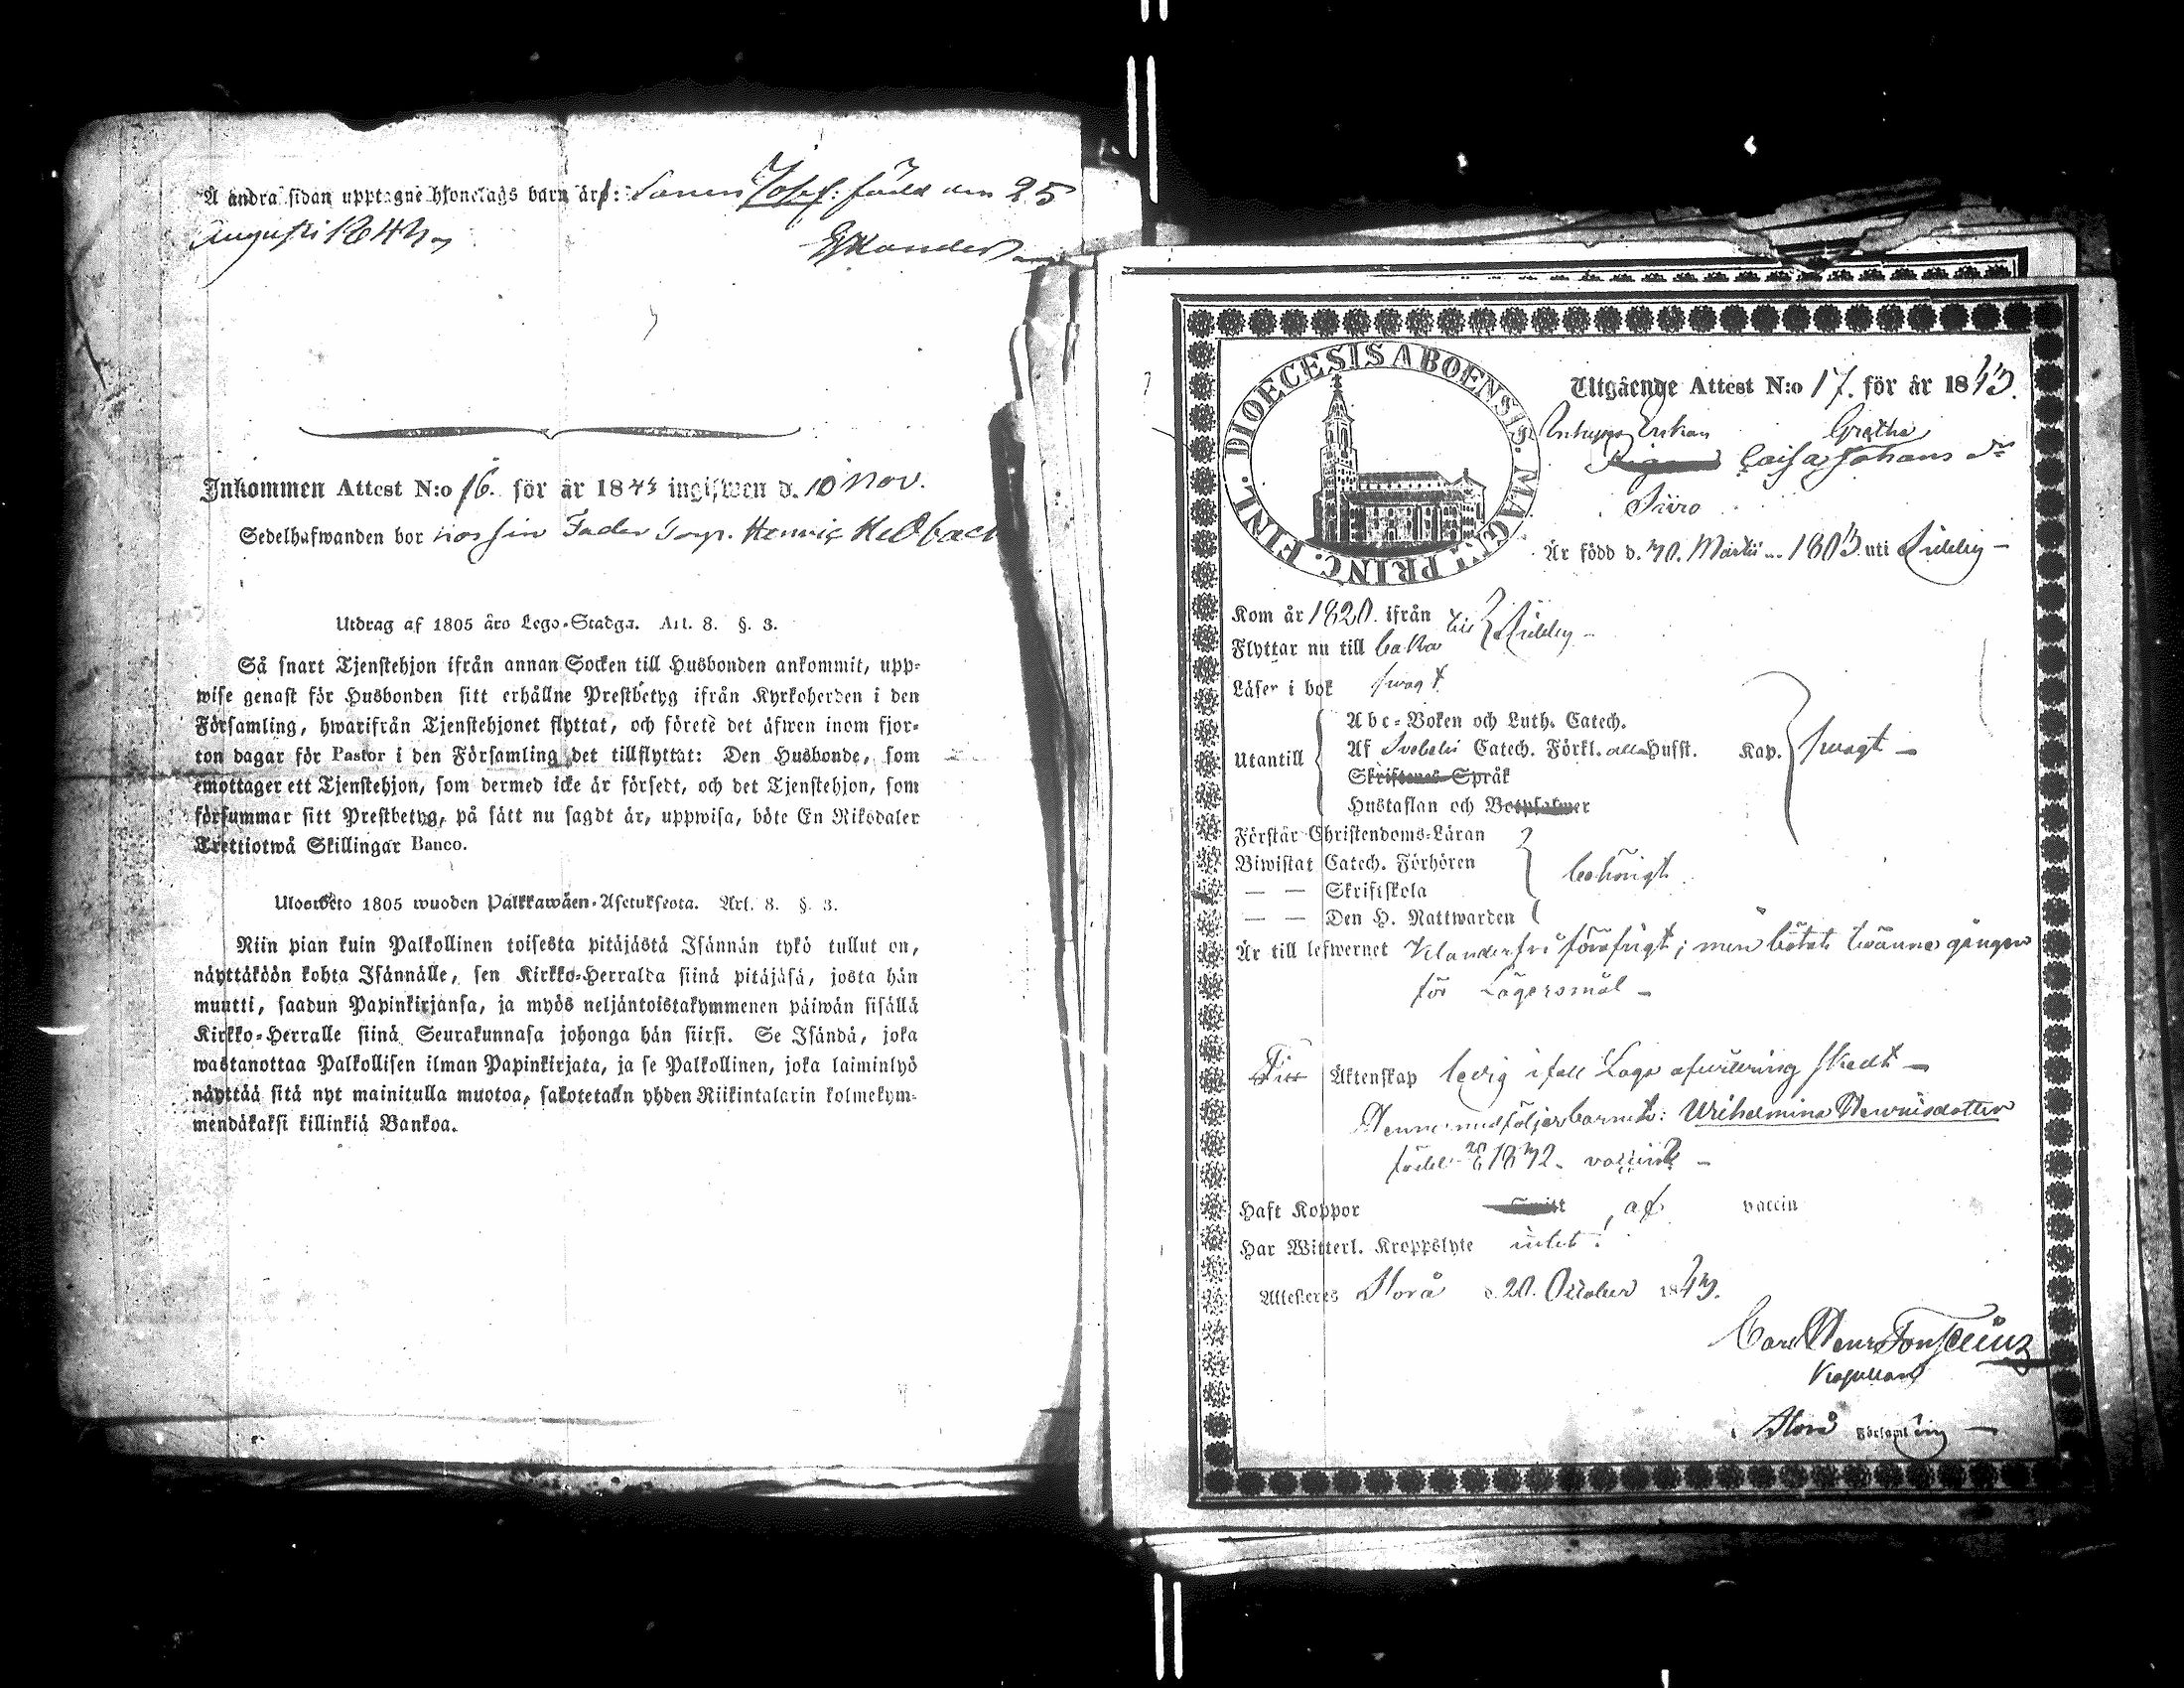 Å andra sidan upptagne hjonelags barn är: Sonen Josef: född den 25
Augusti 1842
Inkommen Attest N:o 16. för år 1843 ingifwen d. 10 Nov.
Sedelhafwanden bor hos sin Fader Torp. Henric Hellback
Utdrag af 1805 års Lego-Stadga. Art. 8. §. 3.
Så snart Tjenstehjon ifrån annan Socken till Husbonden ankommit, upp-
wise genast för Husbonden sitt erhållne Prestbetyg ifrån Kyrkoherden i den
Församling, hwarifrån Tjenstehjonet flyttat, och förete det äfwen inom fjor-
ton dagar för Pastor i den Församling det tillflyttat: Den Husbonde, som
emottager ett Tjenstehjon, som dermed icke är försedt, och det Tjenstehjon, som
försummar sitt Prestbetyg, på sätt nu sagdt är, uppwisa, böte En Riksdaler
Trettiotwå Skillingar Banco.
Ulosweto 1805 wuoden Palkkawäen-Asetuksesta. Art. 8. §. 3.
Niin pian kuin Palkollinen toisesta pitäjästä Isännän tykö tullut on,
näyttäköön kohta Isännälle, sen Kirkko-Herralda siinä pitäjäsä, josta hän
muutti, saadun Papinkirjansa, ja myös neljäntoistakymmenen päiwän sisällä
Kirkko-Herralle siinä Seurakunnasa johonga hän siirsi. Se Isändä, joka
wastanottaa Palkollisen ilman Papinkirjata, ja se Palkollinen, joka laiminlyö
näyttää sitä nyt mainitulla muotoa, sakotetacn yhden Riikintalarin kolmekym-
mendäkaksi killinkiä Bankoa.
DIOECESIS ABOENSIS. MAGNI PRINC. FINL.
Utgående Attest N:o 17. för år 1843.
Enkan Gretha
Caisa Johans dr
Är född d. 30. Martii 1803 uti Sideby
Kom år 1820. ifrån
Flyttar nu till Sideby
Läser i bok swagt
Utantill
Abc-Boken och Luth. Catech.
Af Svebelii Catech. Förkl. alla Hufst. Kap. swagt
Skriftenes Språk
Hustaflan och Botpsalmer
Förstår Christendoms-Läran
Biwistat Catech. Förhören behörigt
— — Skriftskola
— — Den H. Nattwarden
Är till lefwernet Klanderfri för öfrigt; men bötat twänne gånger
för Lägersmål
Till Äktenskap ledig ifall Laga afwittring skedt
Henne medföljer barnet: Wilhelmina Henricsdotter
född 1832. vaccin.
Haft Koppor af vaccin
Har Witterl. Kroppslyte intet!
Attesteres Storå d. 20. October 1843.
Carl Henr Fonselius
Kapellan
i Storå Församling